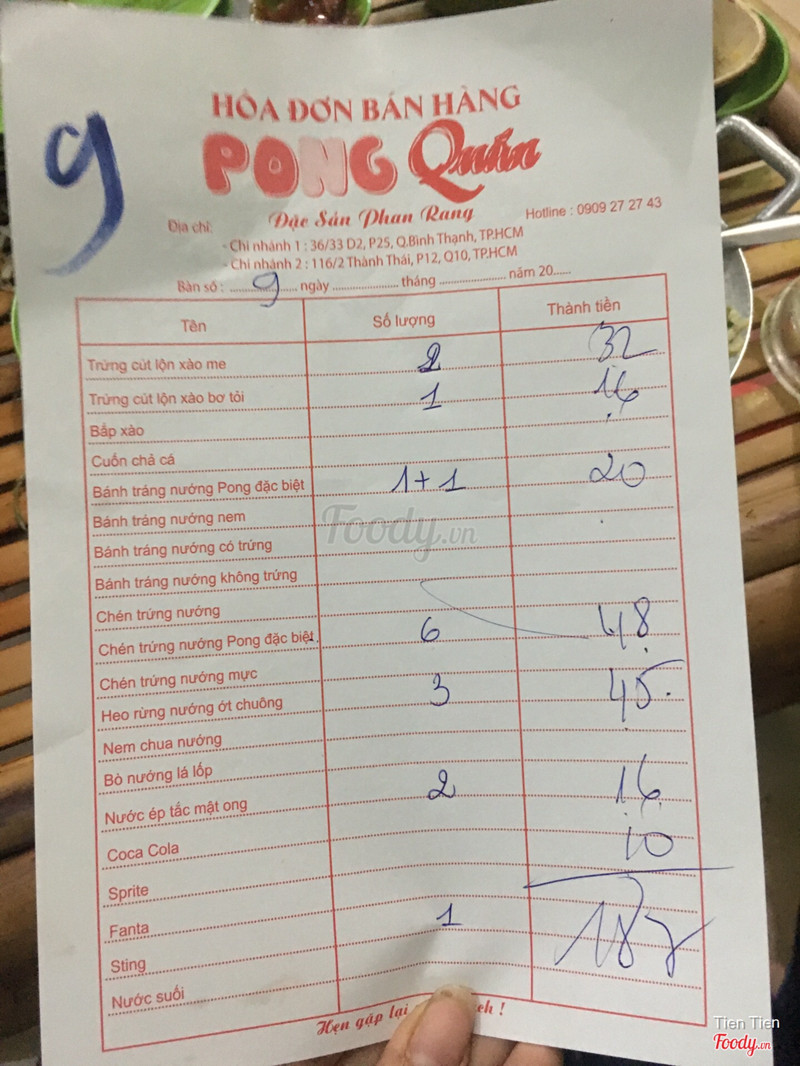 9
HÓA ĐƠN BÁN HÀNG
PONG Quán
Đặc Sản Phan Rang
Địa chỉ:
Hotline : 0909 27 27 43
- Chi nhánh 1 : 36/33 D2, P25, Q.Bình Thạnh, TP.HCM
- Chi nhánh 2 : 116/2 Thành Thái, P12, Q10, TP.HCM
Bàn số : 9 ngày ........ tháng ........ năm 20.....
Tên Số lượng Thành tiền
Trứng cút lộn xào me 2 32
Trứng cút lộn xào bơ tỏi 1 16
Bắp xào
Cuốn chả cá
Bánh tráng nướng Pong đặc biệt 1+1 20
Bánh tráng nướng nem
Bánh tráng nướng có trứng
Bánh tráng nướng không trứng
Chén trứng nướng
Chén trứng nướng Pong đặc biệt 6 48
Chén trứng nướng mực
Heo rừng nướng ớt chuông 3 45
Nem chua nướng
Bò nướng lá lốp
Nước ép tắc mật ong 2 16
Coca Cola 10
Sprite
Fanta 1 187
Sting
Nước suối
Hẹn gặp lại ch !
Foody.vn
Tien Tien
Foody.vn